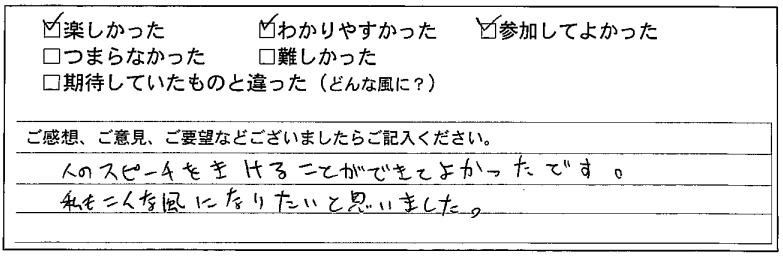 ☑楽しかった ☑わかりやすかった ☑参加してよかった
□つまらなかった □難しかった
□期待していたものと違った（どんな風に？）
ご感想、ご意見、ご要望などございましたらご記入ください。
人のスピーチをきけることができてよかったです。
私もこんな風になりたいと思いました。